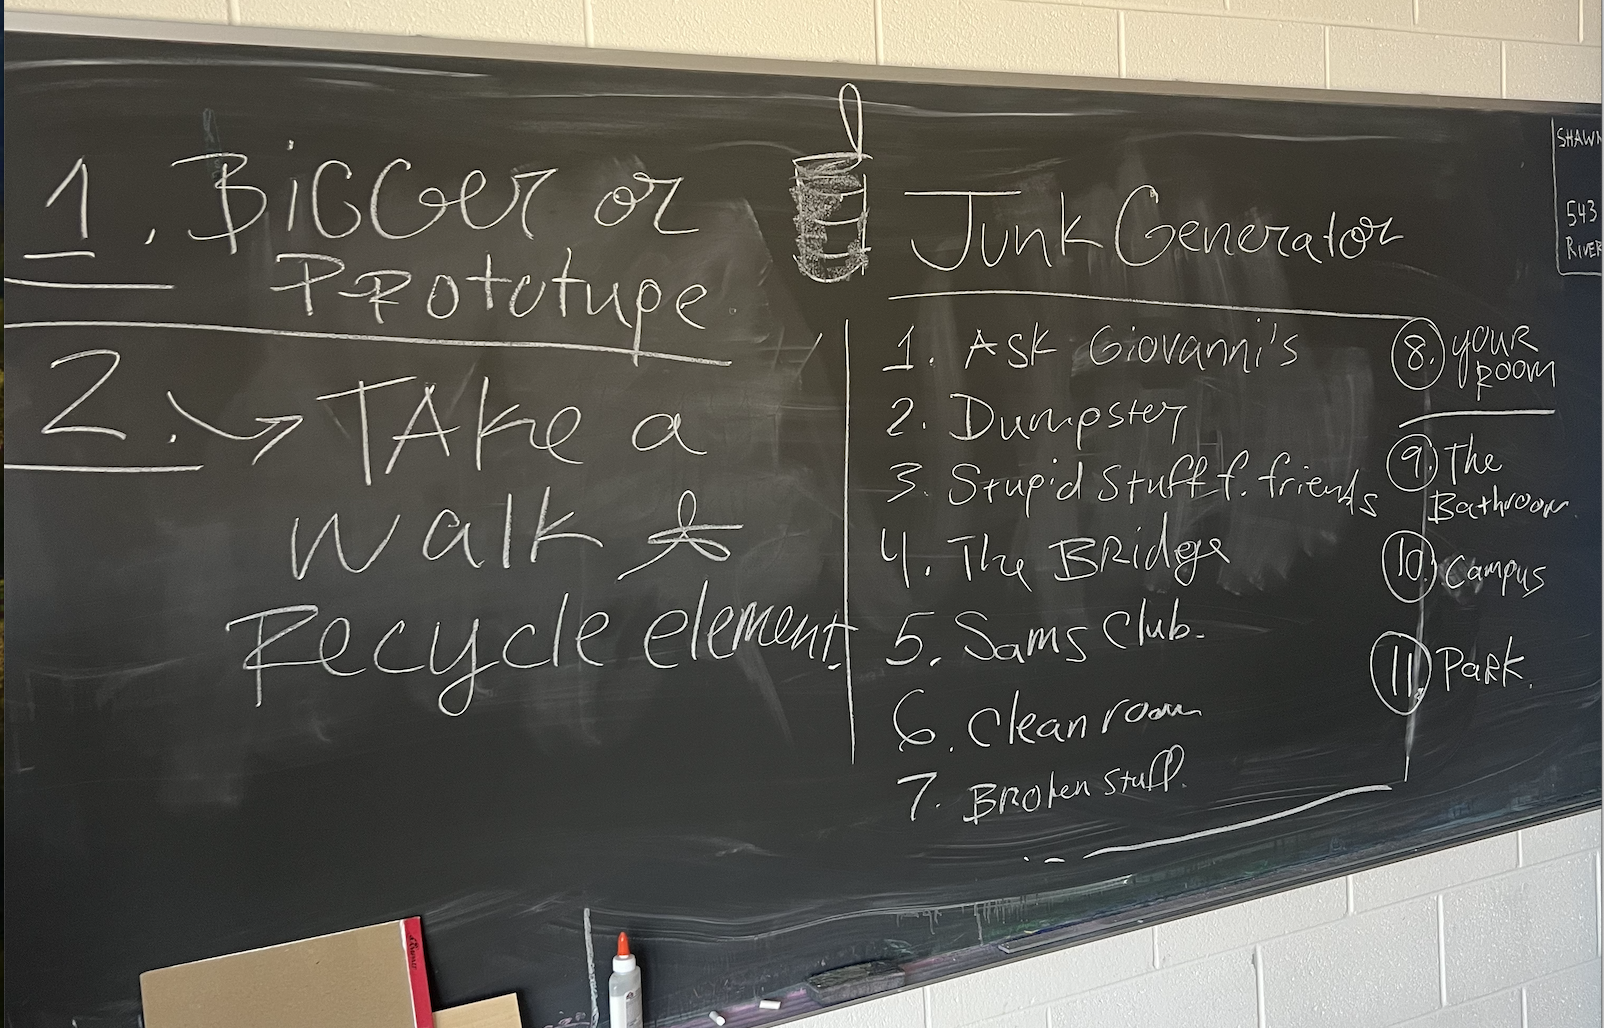 1. BiGGer or
PROtotupe.
2. → TAKe a
walk &
Recycle element.
Junk Generator
1. Ask Giovanni's
2. Dumpster
3. Stupid Stuff f. friends
4. The BRidge
5. Sams Club.
6. Clean room
7. BRoken stuff.
8. youR
Room
9. The
Bathroom.
10. Campus
11. PaRk.
SHAWN
543
RIVER